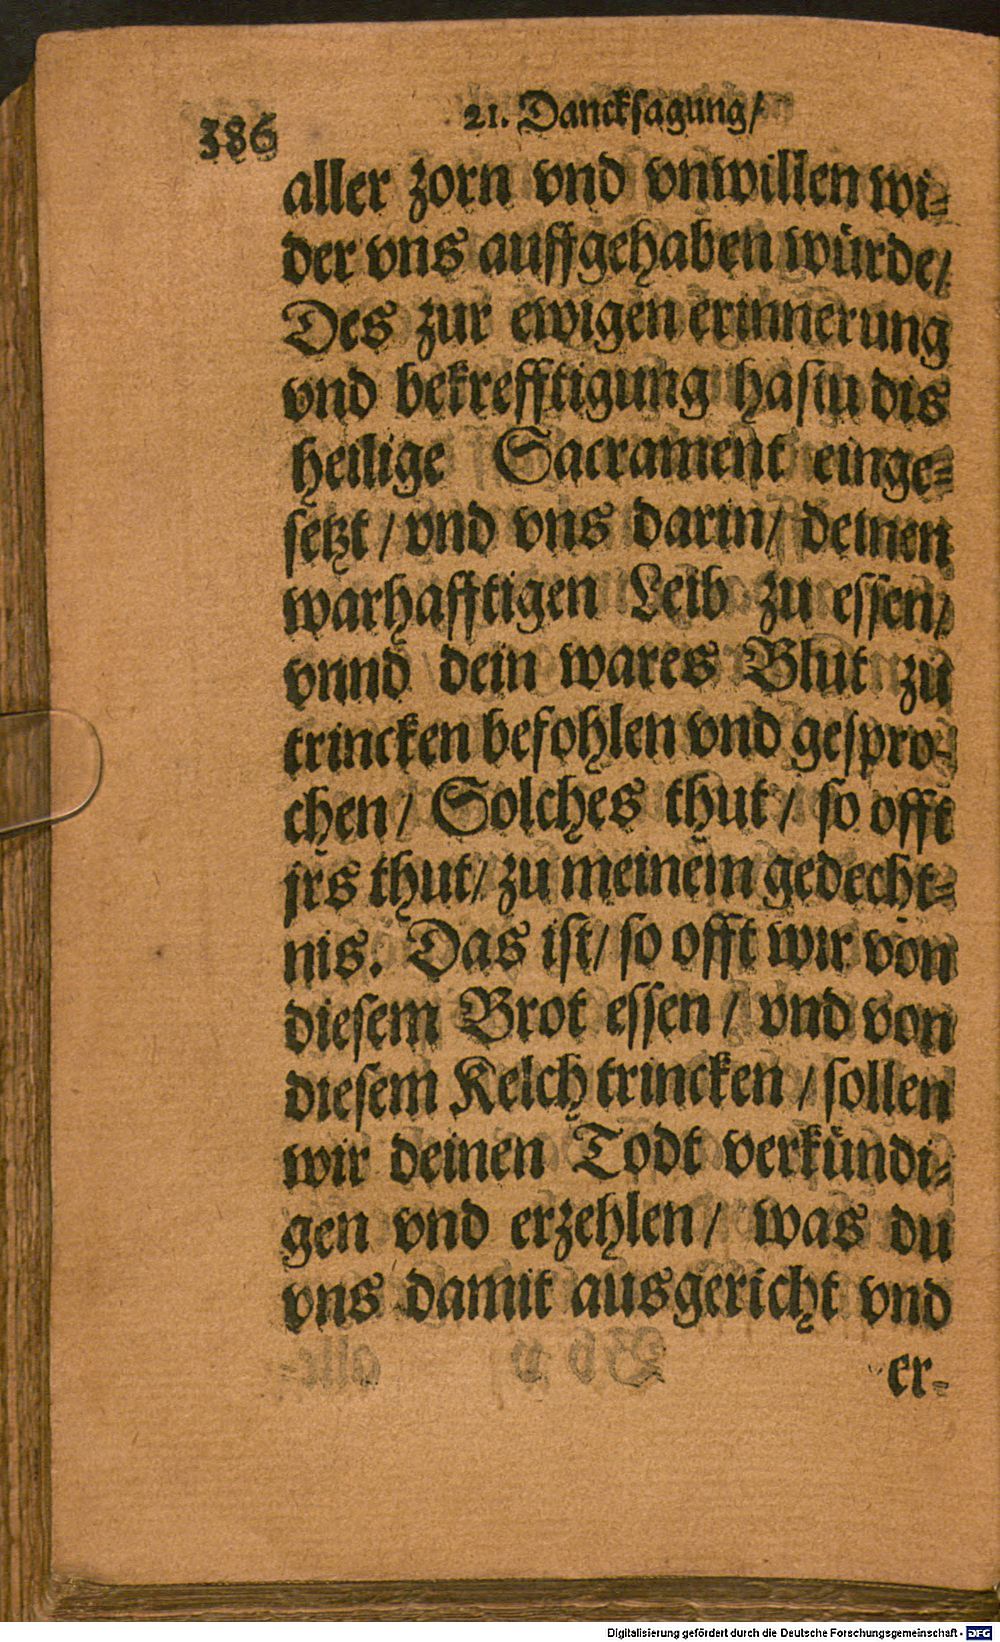 386
21. Danckſagung/
aller zorn vnd vnwillen wi⸗
der vns auffgehaben würde/
Des zur ewigen erinnerung
vnd bekrefftigung haſtu dis
heilige Sacrament einge⸗
ſetzt / vnd vns darin/ deinen
warhafftigen Leib zu eſſen/
vnnd dein wares Blut zu
trincken befohlen vnd geſpro⸗
chen/ Solches thut / ſo offt
jrs thut/ zu meinem gedecht⸗
nis. Das iſt/ ſo offt wir von
dieſem Brot eſſen / vnd von
dieſem Kelch trincken / ſollen
wir deinen Todt verkündi⸗
gen vnd erzehlen/ was du
vns damit ausgericht vnd
er⸗
Digitalisierung gefördert durch die Deutsche Forschungsgemeinschaft - DFG